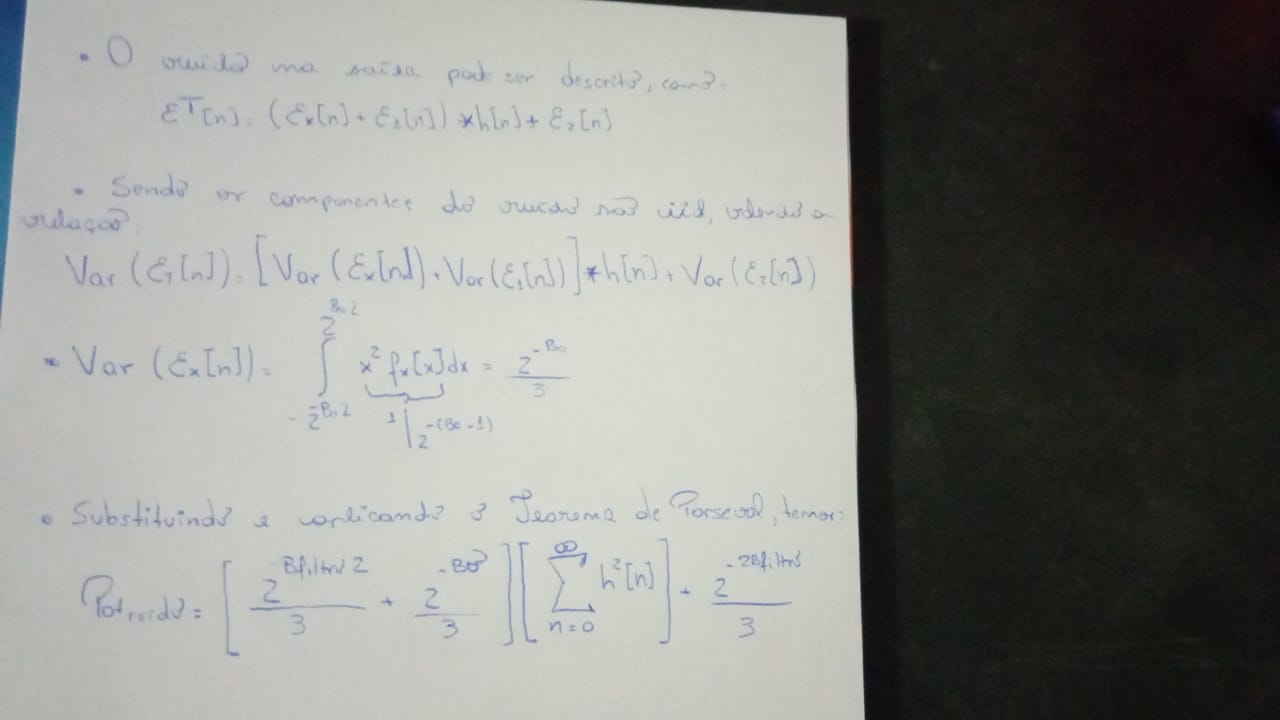 • O ruído na saída pode ser descrito, como:
ℰT[n] = (ℰx[n] + ℰ1[n]) * h[n] + ℰ2[n]
• Sendo os componentes do ruído são iid, a
relação
Var (ℰT[n]) = [Var (ℰx[n]) + Var(ℰ1[n])] * h[n] + Var (ℰ2[n])
• Var (ℰx[n]) = ∫ x² fx[x]dx = 2^-B0 / 3
1/2^-(B0-1)
• Substituindo e aplicando o Teorema de Parseval, temos:
Potruído = [2^Bfiltro2 / 3 + 2^-B0 / 3] [∑ n=0 ∞ h²[n]] + 2^-2Bfiltro / 3